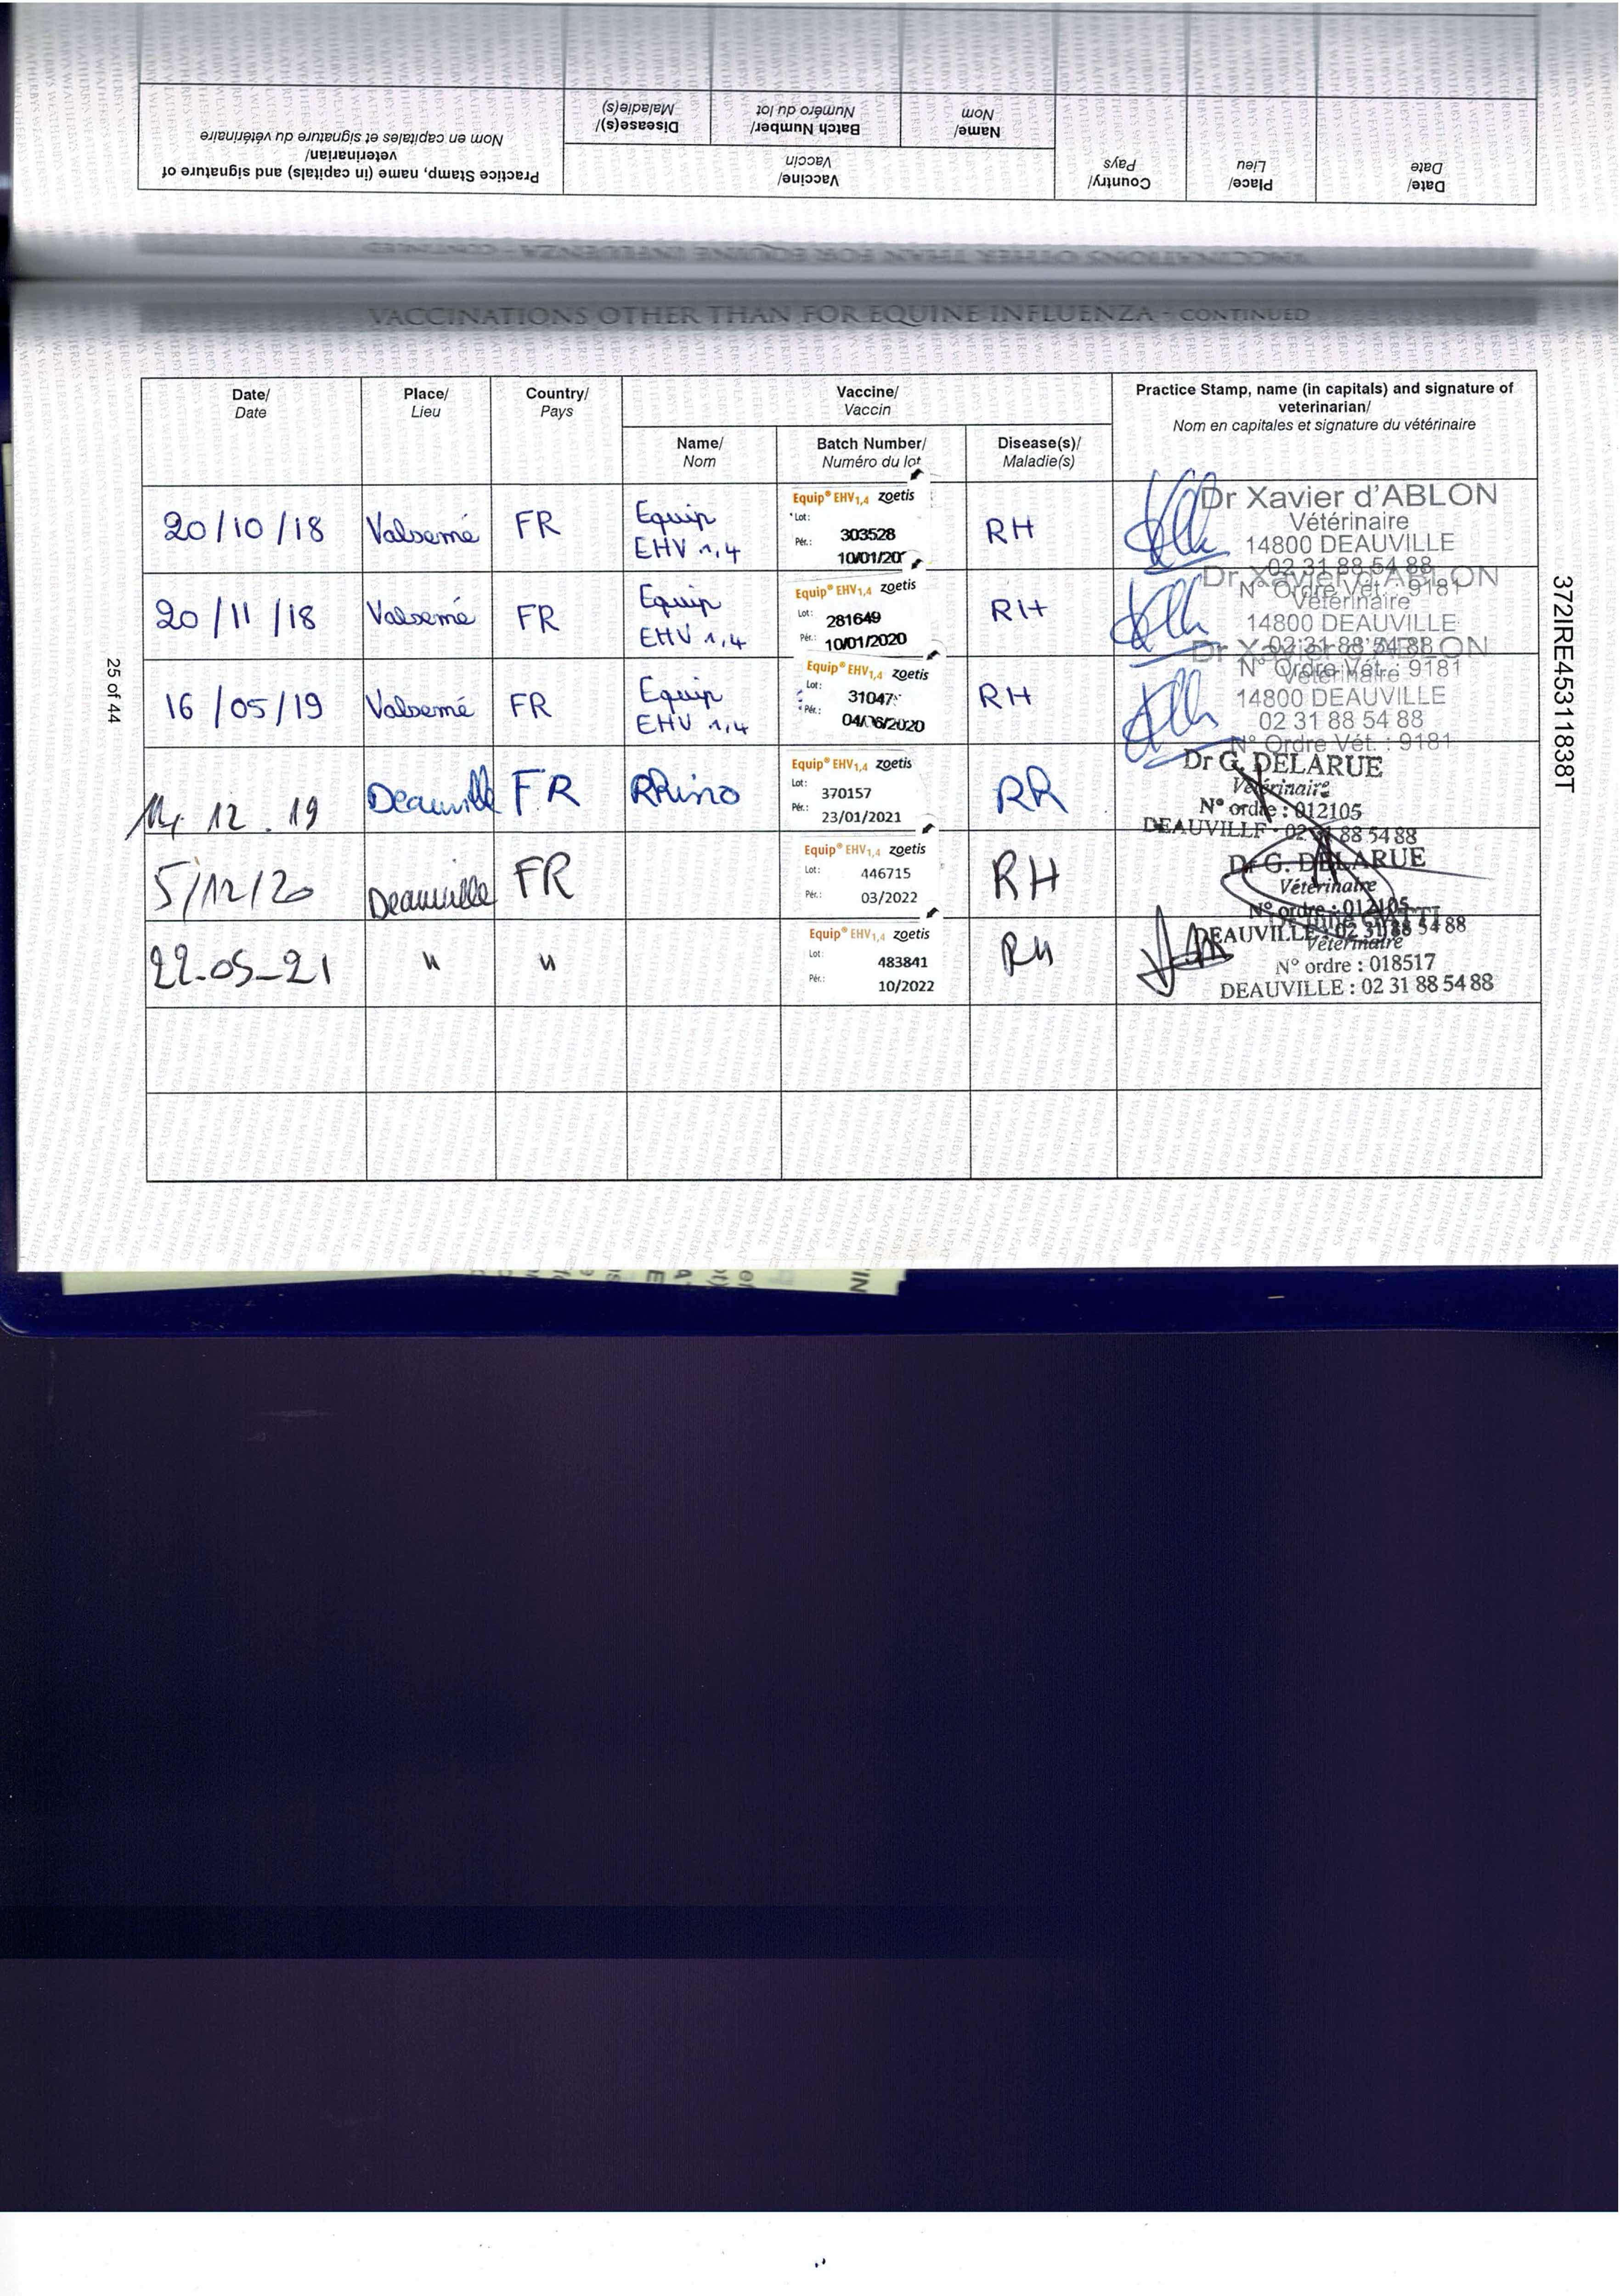 Practice Stamp, name (in capitals) and signature of
veterinarian/
Nom en capitales et signature du vétérinaire
Vaccine/
Vaccin
Disease(s)/
Maladie(s)
Batch Number/
Numéro du lot
Name/
Nom
Country/
Pays
Place/
Lieu
Date/
Date
VACCINATIONS OTHER THAN FOR EQUINE INFLUENZA - CONTINUED
VACCINATIONS OTHER THAN FOR EQUINE INFLUENZA - CONTINUED
Date/
Date
Place/
Lieu
Country/
Pays
Vaccine/
Vaccin
Name/
Nom
Batch Number/
Numéro du lot
Disease(s)/
Maladie(s)
Practice Stamp, name (in capitals) and signature of
veterinarian/
Nom en capitales et signature du vétérinaire
20/10/18
Valsemé
FR
Equip
EHV 1,4
Equip® EHV1,4 zoetis
Lot:
303528
Pér.:
10/01/20
RH
Dr Xavier d'ABLON
Vétérinaire
14800 DEAUVILLE
02 31 88 54 88
N° Ordre Vét. : 9181
20/11/18
Valsemé
FR
Equip
EHV 1,4
Equip® EHV1,4 zoetis
Lot: 281649
Pér.: 10/01/2020
RH
Dr Xavier d'ABLON
Vétérinaire
14800 DEAUVILLE
02 31 88 54 88
N° Ordre Vét. : 9181
16/05/19
Valsemé
FR
Equip
EHV 1,4
Equip® EHV1,4 zoetis
Lot: 31047
Pér.: 04/06/2020
RH
Dr Xavier d'ABLON
Vétérinaire
14800 DEAUVILLE
02 31 88 54 88
N° Ordre Vét. : 9181
12.19
Deauville
FR
Rhino
Equip® EHV1,4 zoetis
Lot: 370157
Pér.: 23/01/2021
RR
Dr G. DELARUE
Vétérinaire
N° ordre : 012105
DEAUVILLE : 02 31 88 54 88
5/12/20
Deauville
FR
Equip® EHV1,4 zoetis
Lot: 446715
Pér.: 03/2022
RH
Dr G. DELARUE
Vétérinaire
N° ordre : 012105
DEAUVILLE : 02 31 88 54 88
22-05-21
"
"
Equip® EHV1,4 zoetis
Lot: 483841
Pér.: 10/2022
RH
Vétérinaire
N° ordre : 018517
DEAUVILLE : 02 31 88 54 88
25 of 44
372IRE45311838T